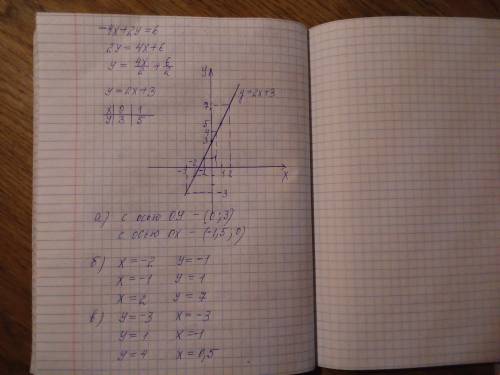 -4x+2y=6
2y=4x+6
y=4x/2+6/2
y=2x+3
x 0 1
y 3 5
y
y=2x+3
7
5
4
3
1
-3 -2 -1 1 2
x
-3
а) с осью OY - (0;3)
с осью OX - (-1,5;0)
б) x=-2 y=-1
x=-1 y=1
x=2 y=7
в) y=-3 x=-3
y=1 x=-1
y=4 x=0,5